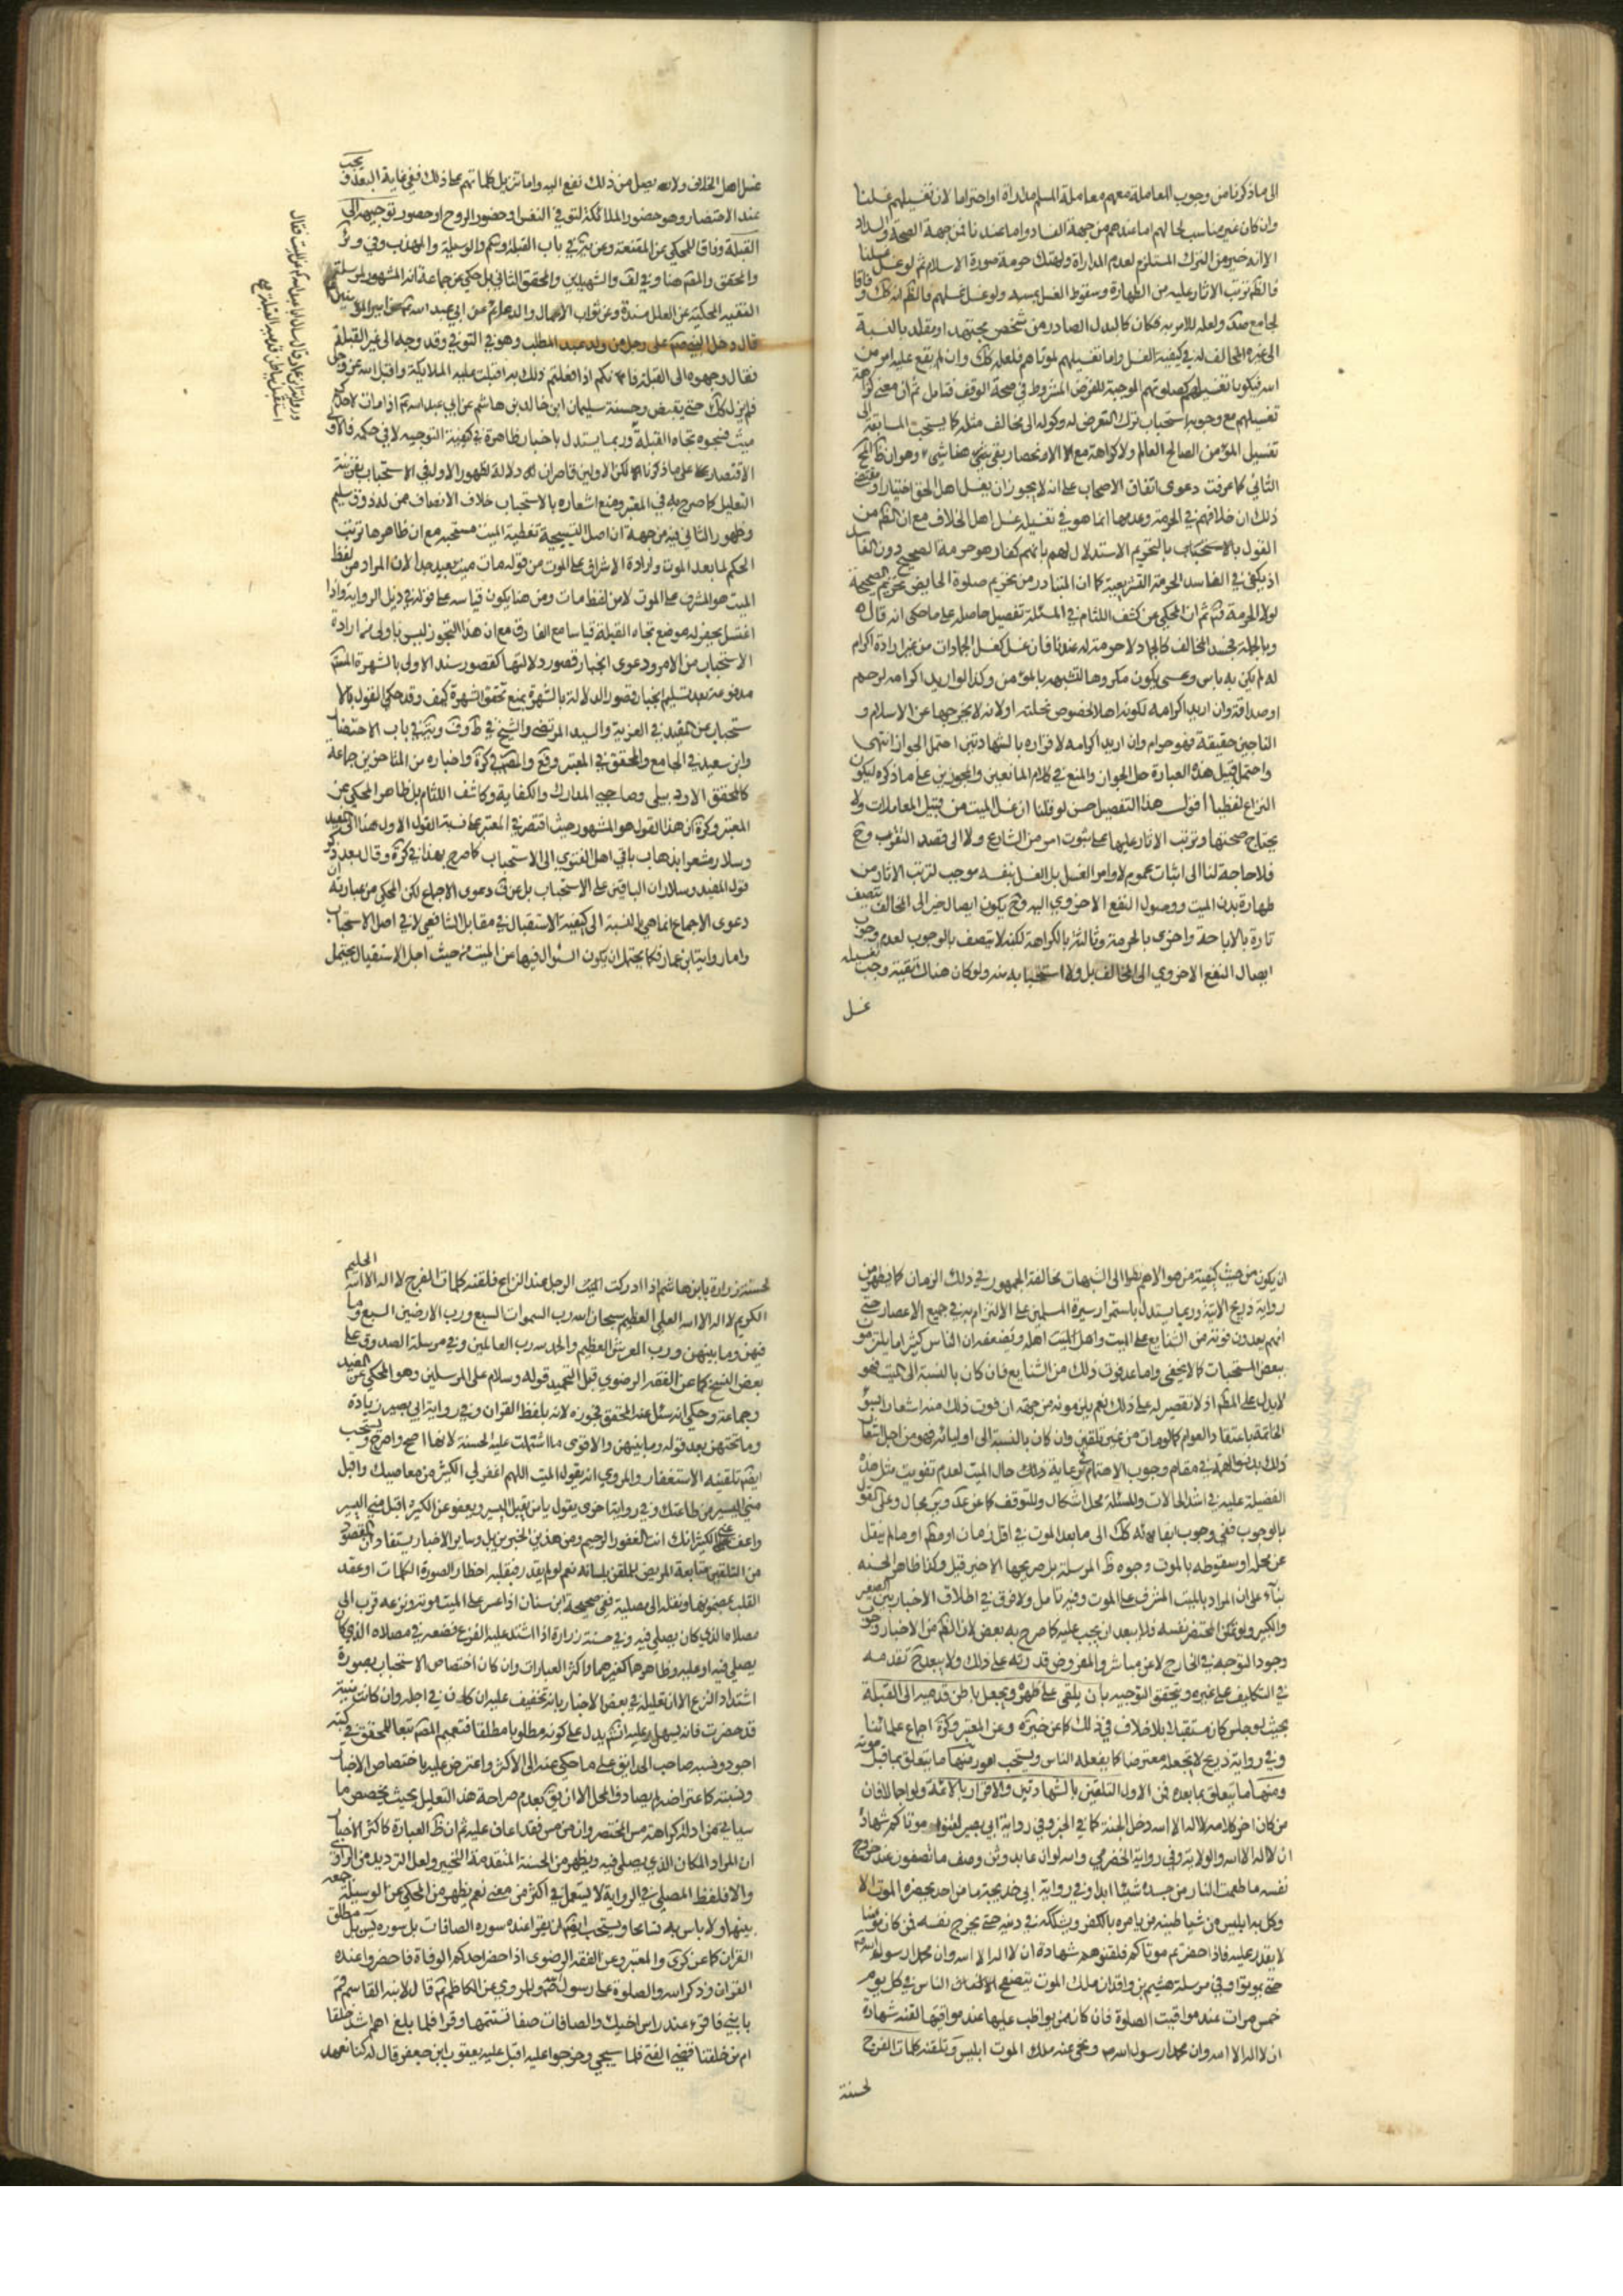 الى ما ذكرنا من وجوب المعاملة معهم معاملة المسلم مداراة او احتراما لان تغسيلهم غسلنا
وان كان غير مناسب لحالهم اما عندهم من جهة الفساد واما عندنا فمن جهة الصحة ولا داد
الا انه خير من الترك المستلزم لعدم المداراة ولهتك حرمة صورة الاسلام ثم لو غسل غسلنا
فالظم ترتب الاثار عليه من الطهارة وسقوط الغسل بمسه ولو غسل غسلهم فالظم انه كك وفاقا
لجامع صد ولعله للامر به فكان كالبدل الصادر من شخص مجتهد او مقلد بالنسبة
الى غيره المخالف له في كيفية الغسل واما تغسيلهم لموتاهم فلعله كك وان لم يقع عليه امر من
الله فيكون تغسيلهم كصلوتهم الموجبة للغرض المشروط في صحة الوقف فتامل ثم ان معنى كراهة
تغسيلهم مع وجوبه استحباب ترك التعرض له وكوله الى مخالف مثله كما يستحب المسابقة الى
تغسيل المؤمن الصالح العالم ولا كراهة مع الانحصار بقي شيء وهو ان ظ المحقق
الثاني كما عرفت دعوى اتفاق الاصحاب على انه لا يجوز ان يغسل اهل الحق اختيارا ومقتضى
ذلك ان خلافهم في الحرمة وعدمها انما هو في تغسيله غسل اهل الخلاف مع ان الظم من
القول بالاستحباب بالتحريم الاستدلال لهم بانهم كفار هو حرمة الصحيح دون الفاسد
اذ يكفي في الفاسد الحرمة التشريعية كما ان المتبادر من تحريم صلوة الحايض تحريم الصحيحة
لولا الحرمة فتم ثم ان المحكي عن كشف اللثام في المسئلة تفصيل حاصله على ما حكى انه قال
وبالجملة فجسد المخالف كالجماد لا حرمة له عندنا فان غسل كغسل الجمادات من غير ارادة اكرام
له لم يكن به باس وعسى يكون مكروها لتشبهه بالمؤمن وكذا لو اريد اكرامه لرحم
او صداقة وان اريد اكرامه لكونه اهلا لخصوص نحلته او لانه لا يخرجها عن الاسلام و
الناجين حقيقة فهو حرام وان اريد اكرامه لاقراره بالشهادتين احتمل الجواز انتهى
واحتمل قبل هذه العبارة حمل الجواز والمنع في كلام المانعين والمجوزين على ما ذكره ليكون
النزاع لفظيا اقول هذا التفصيل حسن لو قلنا ان غسل الميت من قبيل المعاملات ولا
يحتاج صحتها وترتب الاثار عليها على ثبوت امر من الشارع ولا الى قصد التقرب وح
فلا حاجة لنا الى اثبات عموم لاوامر الغسل بل الغسل بنفسه موجب لترتب الاثار من
طهارة بدن الميت ووصول النفع الاخروي اليه وح يكون ايصال خير الى المخالف يتصف
تارة بالاباحة واخرى بالحرمة وثالثة بالكراهة لكنه لا يتصف بالوجوب لعدم وجوب
ايصال النفع الاخروي الى المخالف بل ولا استحبابه منه ولو كان هناك تقية وجب تغسيله
غسل
غسل اهل الخلاف ولانه يصل من ذلك نفع اليه واما تنزيل كلماتهم على ذلك ففي غاية البعد ويجب
عند الاحتضار وهو حضور الملائكة لتوفي النفس او حضور الروح او حضور توجيهه الى
القبلة وفاقا للمحكي عن المقنعة وعن في باب القبلة والوسيلة والمهذب وفي
والمحقق والمصم هنا وفي لف والشهيدين والمحقق الثاني بل حكي عن جماعة انه المشهور لمرسلة
الفقيه المحكية عن العلل مسندة وعن ثواب الاعمال والدعائم عن ابي عبد الله عن امير المؤمنين
قال دخل النبي صم على رجل من ولد عبد المطلب وهو في النوفي وقد وجه الى غير القبلة
فقال وجهوه الى القبلة فانكم اذا فعلتم ذلك به اقبلت عليه الملائكة واقبل الله عز وجل
فلم يزل كك حتى يقبض وحسنة سليمان ابن خالد بن هاشم عن ابي عبد الله اذا مات لاحدكم
ميت فسجوه تجاه القبلة وربما يستدل باخبار ظاهرة في كيفية التوجيه لا في حكمه فالاولى
الاقتصار على ما ذكرنا لكن الاولين قاصران دلالة لظهور الاول في الاستحباب بقرينة
التعليل كما صرح به في المعتبر ومنع اشعاره بالاستحباب خلاف الانصاف ممن له ذوق سليم
وظهور الثاني فيه من جهة ان اصل التسجية تغطية الميت مستحبة مع ان ظاهرها ترتب
الحكم لما بعد الموت وارادة الاشراف على الموت من قوله مات ميت بعيد جدا لان المراد من لفظ
الميت هو المشرف على الموت لا من لفظ مات ومن هنا يكون قياسه على قوله في ذيل الرواية واذا
اغتسل يحفر له موضع تجاه القبلة قياسا مع الفارق مع ان هذا التجوز ليس باولى من ارادة
الاستحباب من الامر ودعوى انجبار قصور دلالتها كقصور سند الاولى بالشهرة
مدفوعة بعد تسليم انجبار قصور الدلالة بالشهرة بمنع تحقق الشهرة كيف وقد حكي القول بالا
ستحباب عن المفيد في العزية والسيد المرتضى والشيخ في ط وف وية في باب الاحتضار
وابن سعيد في الجامع والمحقق في المعتبر وقع والمصم في كرة واختاره من المتاخرين جماعة
كالمحقق الاردبيلي وصاحبي المدارك والكفاية وكاشف اللثام بل ظاهر المحكي عن
المعتبر وكرة ان هذا القول هو المشهور حيث اقتصر في المعتبر على نسبة القول الاول هنا الى المفيد
وسلار مشعرا بذهاب باقي اهل الفتوى الى الاستحباب كما صرح بهذا في كرة وقال بعد ذكر
قول المفيد وسلار ان الباقين على الاستحباب بل عن ف دعوى الاجماع لكن المحكي من عبارته ان
دعوى الاجماع انما هي بالنسبة الى كيفية الاستقبال في مقابل الشافعي لا في اصل الاستحباب
واما رواية ابن عمار فكما يحتمل ان يكون السؤال فيها عن الميت من حيث اصل الاستقبال يحتمل
ورواية ابن عمار قال سالت ابا عبد الله عن الميت فقال
استقبل بباطن قدميه القبلة
ان يكون من حيث كيفيته من هو الاهم نظرا الى الشبهات مخالفة الجمهور في ذلك الزمان كما يظهر من
رواية ذريح الاتية وربما يستدل باستمرار سيرة المسلمين على الالتزام به في جميع الاعصار حتى
انهم يعدون فوته من الشنايع على الميت واهل الميت اهله ويضعفه ان الناس كثيرا ما يلتزمون
بعض المستحبات كما لا يخفى واما عد فوت ذلك من الشنايع فان كان بالنسبة الى الميت فهو
لا يدل على المطلم اذ لا تقصير له على ذلك نعم يلزمونه من جهة ان فوت ذلك منه اشعار بسوء
الخاتمة باعتقاد العوام كما لو مات من غير تلقين وان كان بالنسبة الى اوليائه فهو من اجل
ذلك في مقام وجوب الاهتمام برعاية ذلك حال الميت لعدم تفويت مثل هذه
الفضيلة عليه في اشد الحالات وللمسئلة محل اشكال وللتوقف كما عن عد مجال وعلى القول
بالوجوب ففي وجوب ابقائه كك الى ما بعد الموت في اقل زمان او مطم او ما لم ينقل
عن محله او سقوطه بالموت وجوه ظ المرسلة بل صريحها الاخير قيل وكذا ظاهر الحسنة
بناء على ان المراد بالميت المشرف على الموت وفيه تامل ولا فرق في اطلاق الاخبار بين الصغير
والكبير ولو تمكن المحتضر بنفسه فلا يبعد ان يجب عليه كما صرح به بعض لان الظم من الاخبار وجوب
وجود التوجيه في الخارج لا عن مباشر والمفروض قدرته على ذلك ولا يبعد ح تقدمه
في التكليف على غيره ويتحقق التوجيه بان يلقى على ظهره ويجعل باطن قدميه الى القبلة
بحيث لو جلس كان مستقبلا بلا خلاف في ذلك كما عن وعن المعتبر وكرة اجماع علمائنا
وفي رواية ذريح لا تجعله معترضا كما يفعله الناس ويستحب امور منها ما يتعلق بما قبل موته
ومنها ما يتعلق بما بعده فمن الاول التلقين بالشهادتين والاقرار بالائمة ولو اجمالا فان
من كان اخر كلامه لا اله الا الله دخل الجنة كما في الخبر وفي رواية ابي بصير لقنوا موتاكم شهادة
ان لا اله الا الله والولاية وفي رواية الحضرمي والله لو ان عابد وثن وصف ما تصفون عند خروج
نفسه ما طعمت النار من جسده شيئا ابدا وفي رواية ابي خديجة ما من احد يحضره الموت الا
وكل به ابليس من شياطينه من يامره بالكفر ويشككه في دينه حتى يخرج نفسه فمن كان مؤمنا
لا يقدر عليه فاذا حضرتم موتاكم فلقنوهم شهادة ان لا اله الا الله وان محمدا رسول الله
حتى يموتوا وفي مرسلة هيثم بن واقد ان ملك الموت يتصفح الناس في كل يوم
خمس مرات عند مواقيت الصلوة فان كان ممن يواظب عليها عند مواقيتها لقنه شهادة
ان لا اله الا الله وان محمدا رسول الله ونحى عنه ملك الموت ابليس وتلقنه كلمات الفرج
لحسنة
لحسنة زرارة بابن هاشم اذا ادركت الرجل عند النزاع فلقنه كلمات الفرج لا اله الا الله الحليم
الكريم لا اله الا الله العلي العظيم سبحان الله رب السموات السبع ورب الارضين السبع وما
فيهن وما بينهن ورب العرش العظيم والحمد لله رب العالمين وفي مرسلة الصدوق على
بعض النسخ كما عن الفقه الرضوي قبل التحميد قوله وسلام على المرسلين وهو المحكي عن المفيد
وجماعة وحكي انه سئل عنه المحقق فجوزه لانه بلفظ القران وفي رواية ابي بصير زيادة
وما تحتهن بعد قوله وما بينهن والاقوى ما اشتملت عليه الحسنة لانها اصح واصرح ويستحب
ايضم تلقينه الاستغفار والمروي انه يقول الميت اللهم اغفر لي الكثير من معاصيك واقبل
مني اليسير من طاعتك وفي رواية اخرى يقول يا من يقبل اليسير ويعفو عن الكثير اقبل مني اليسير
واعف عني الكثير انك انت الغفور الرحيم ومن هذين الخبرين بل وساير الاخبار يستفاد ان المقصود
من التلقين متابعة المريض للملقن بلسانه نعم لو لم يقدر فبقلبه احظارا لصورة الكلمات او عقد
القلب بمضمونها ونقله الى مصليه ففي صحيحة ابن سنان اذا عسر على الميت موته ونزعه قرب الى
مصلاه الذي كان يصلي فيه وفي حسنة زرارة اذا اشتد عليه النزع فضعه في مصلاه الذي كان
يصلي فيه او عليه وظاهرها كغيرهما واكثر العبارات وان كان اختصاص الاستحباب بصورة
اشتداد النزع الا ان تعليله في بعض الاخبار بانه تخفيف عليه ان كان في اجله وان كانت منيته
قد حضرت فانه يسهل عليه انشم يدل على كونه مطلوبا مطلقا فتعميم المصم تبعا للمحقق في كتبه
اجود ونسبه صاحب الحدايق على ما حكي عنه الى الاكثر واعترض عليه باختصاص الاخبار
ونسبته كاعتراضه لم يصادفا محل الا ان يق بعدم صراحة هذا التعليل بحيث يخصص ما
سياتي من ادلة كراهة مس المحتضر وان من مس فقد اعان عليه ثم ان ظ العبارة كاكثر الاخبار
ان المراد المكان الذي يصلي فيه ويظهر من الحسنة المتقدمة التخيير ولعل الترديد من الراوي
والا فلفظ المصلى في الرواية لا يستعمل في اكثر من معنى نعم يظهر من المحكي عن الوسيلة جمعه
بينها ولا باس به تسامحا ويستحب ايضم ان يقرا عنده سورة الصافات بل سورة يس بل مطلق
القران كما عن كرى والمعتبر وعن الفقه الرضوي اذا حضر احدكم الوفاة فاحضروا عنده
القران وذكر الله والصلوة على رسول الله والمروي عن الكاظم قال لابنه القاسم قم
يا بني فاقرء عند راس اخيك والصافات صفا تستتمها وقرا فلما بلغ اهم اشد خلقا
ام من خلقنا فقضى الفتى فلما سجي وخرجوا عليه اقبل عليه يعقوب ابن جعفر قال له كنا نعهد